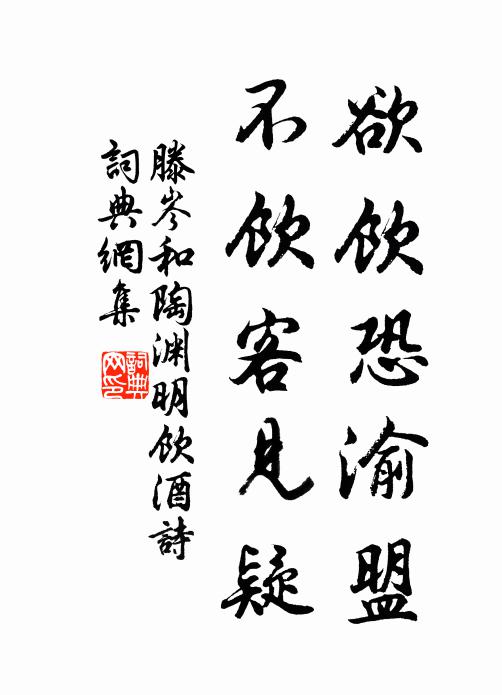 欲飲恐渝盟
不飲客見疑
滕岑和陶渊明飲酒詩
詞典網集
詞典网印